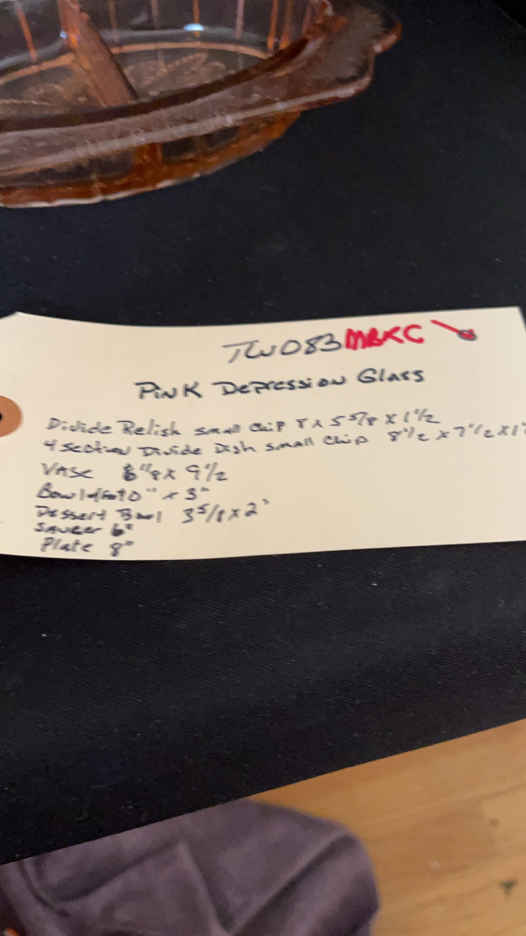 TW083 MBKC
PINK Depression Glass
Divide Relish small chip 8 x 5 5/8 x 1 1/2
4 section Divide Dish small chip 8 1/2 x 7 1/2 x 1
Vase x 9 1/2
Bowl 10" x 3"
Dessert Bowl 3 5/8 x 2"
Saucer 6"
Plate 8"